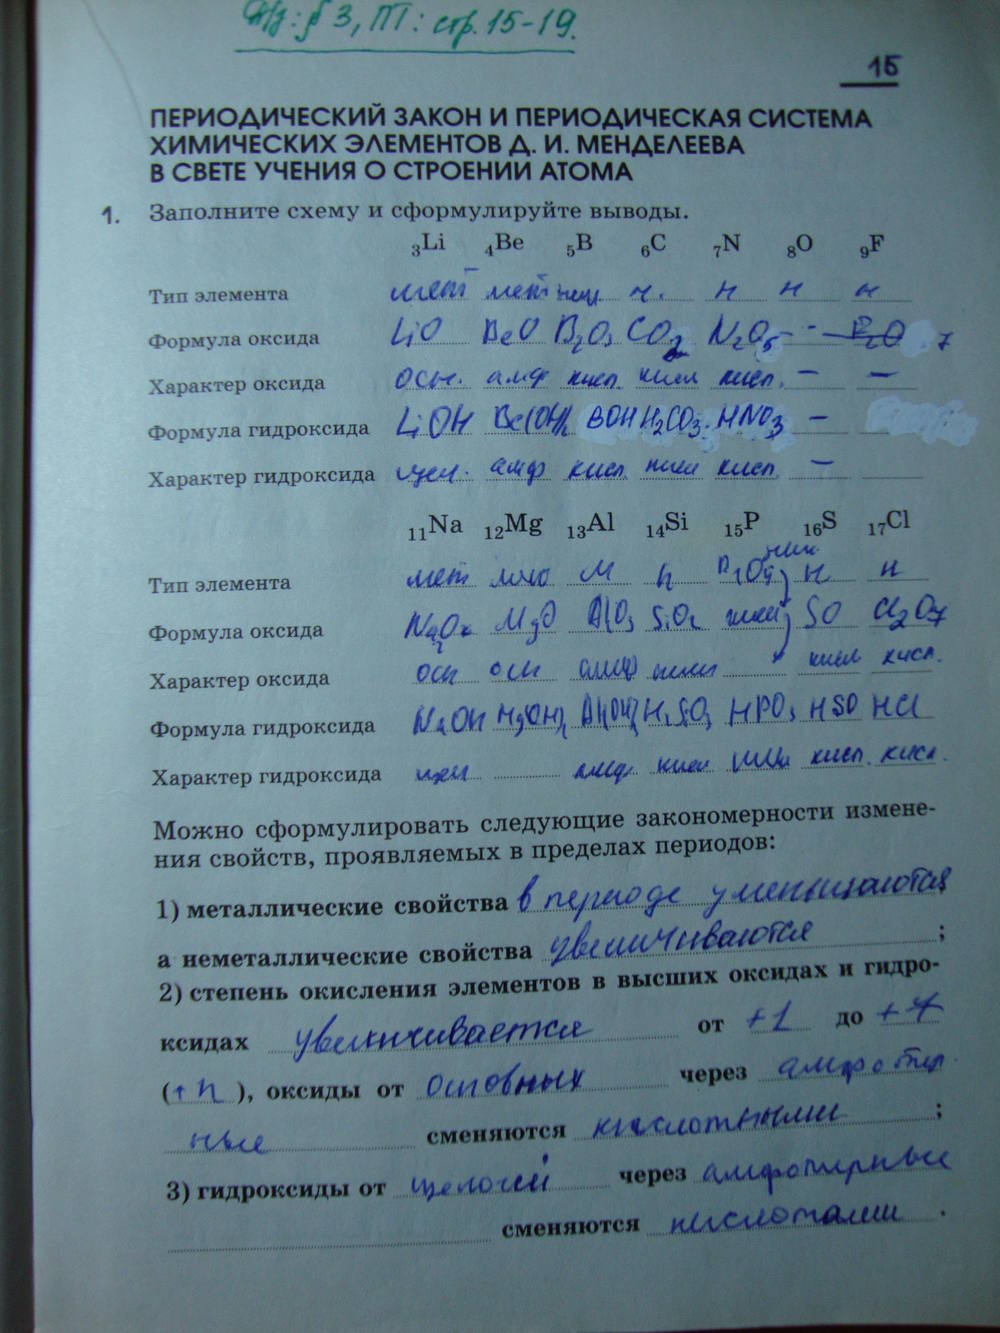 Д/з: § 3, ПТ: стр. 15-19.
15
ПЕРИОДИЧЕСКИЙ ЗАКОН И ПЕРИОДИЧЕСКАЯ СИСТЕМА
ХИМИЧЕСКИХ ЭЛЕМЕНТОВ Д. И. МЕНДЕЛЕЕВА
В СВЕТЕ УЧЕНИЯ О СТРОЕНИИ АТОМА
1. Заполните схему и сформулируйте выводы.
₃Li ₄Be ₅B ₆C ₇N ₈O ₉F
Тип элемента мет мет нем н. н н н
Формула оксида LiO BeO B₂O₃ CO₂ N₂O₅ -
Характер оксида осн. амф кисл. кисл кисл. – –
Формула гидроксида LiOH Be(OH)₂ BOH H₂CO₃ HNO₃ –
Характер гидроксида щел. амф кисл. кисл кисл –
₁₁Na ₁₂Mg ₁₃Al ₁₄Si ₁₅P ₁₆S ₁₇Cl
Тип элемента мет м н н н
Формула оксида MgO SiO₂ SO Cl₂O₇
Характер оксида осн осн амф кисл кисл кисл.
Формула гидроксида NaOH HPO₃ HSO HCl
Характер гидроксида щел амф кисл кисл. кисл.
Можно сформулировать следующие закономерности измене-
ния свойств, проявляемых в пределах периодов:
1) металлические свойства в периоде уменьшаются
а неметаллические свойства увеличиваются ;
2) степень окисления элементов в высших оксидах и гидро-
ксидах увеличивается от +1 до +7
(↑n), оксиды от основных через амфотер
ные сменяются кислотными ;
3) гидроксиды от щелочей через амфотерные
сменяются кислотами .